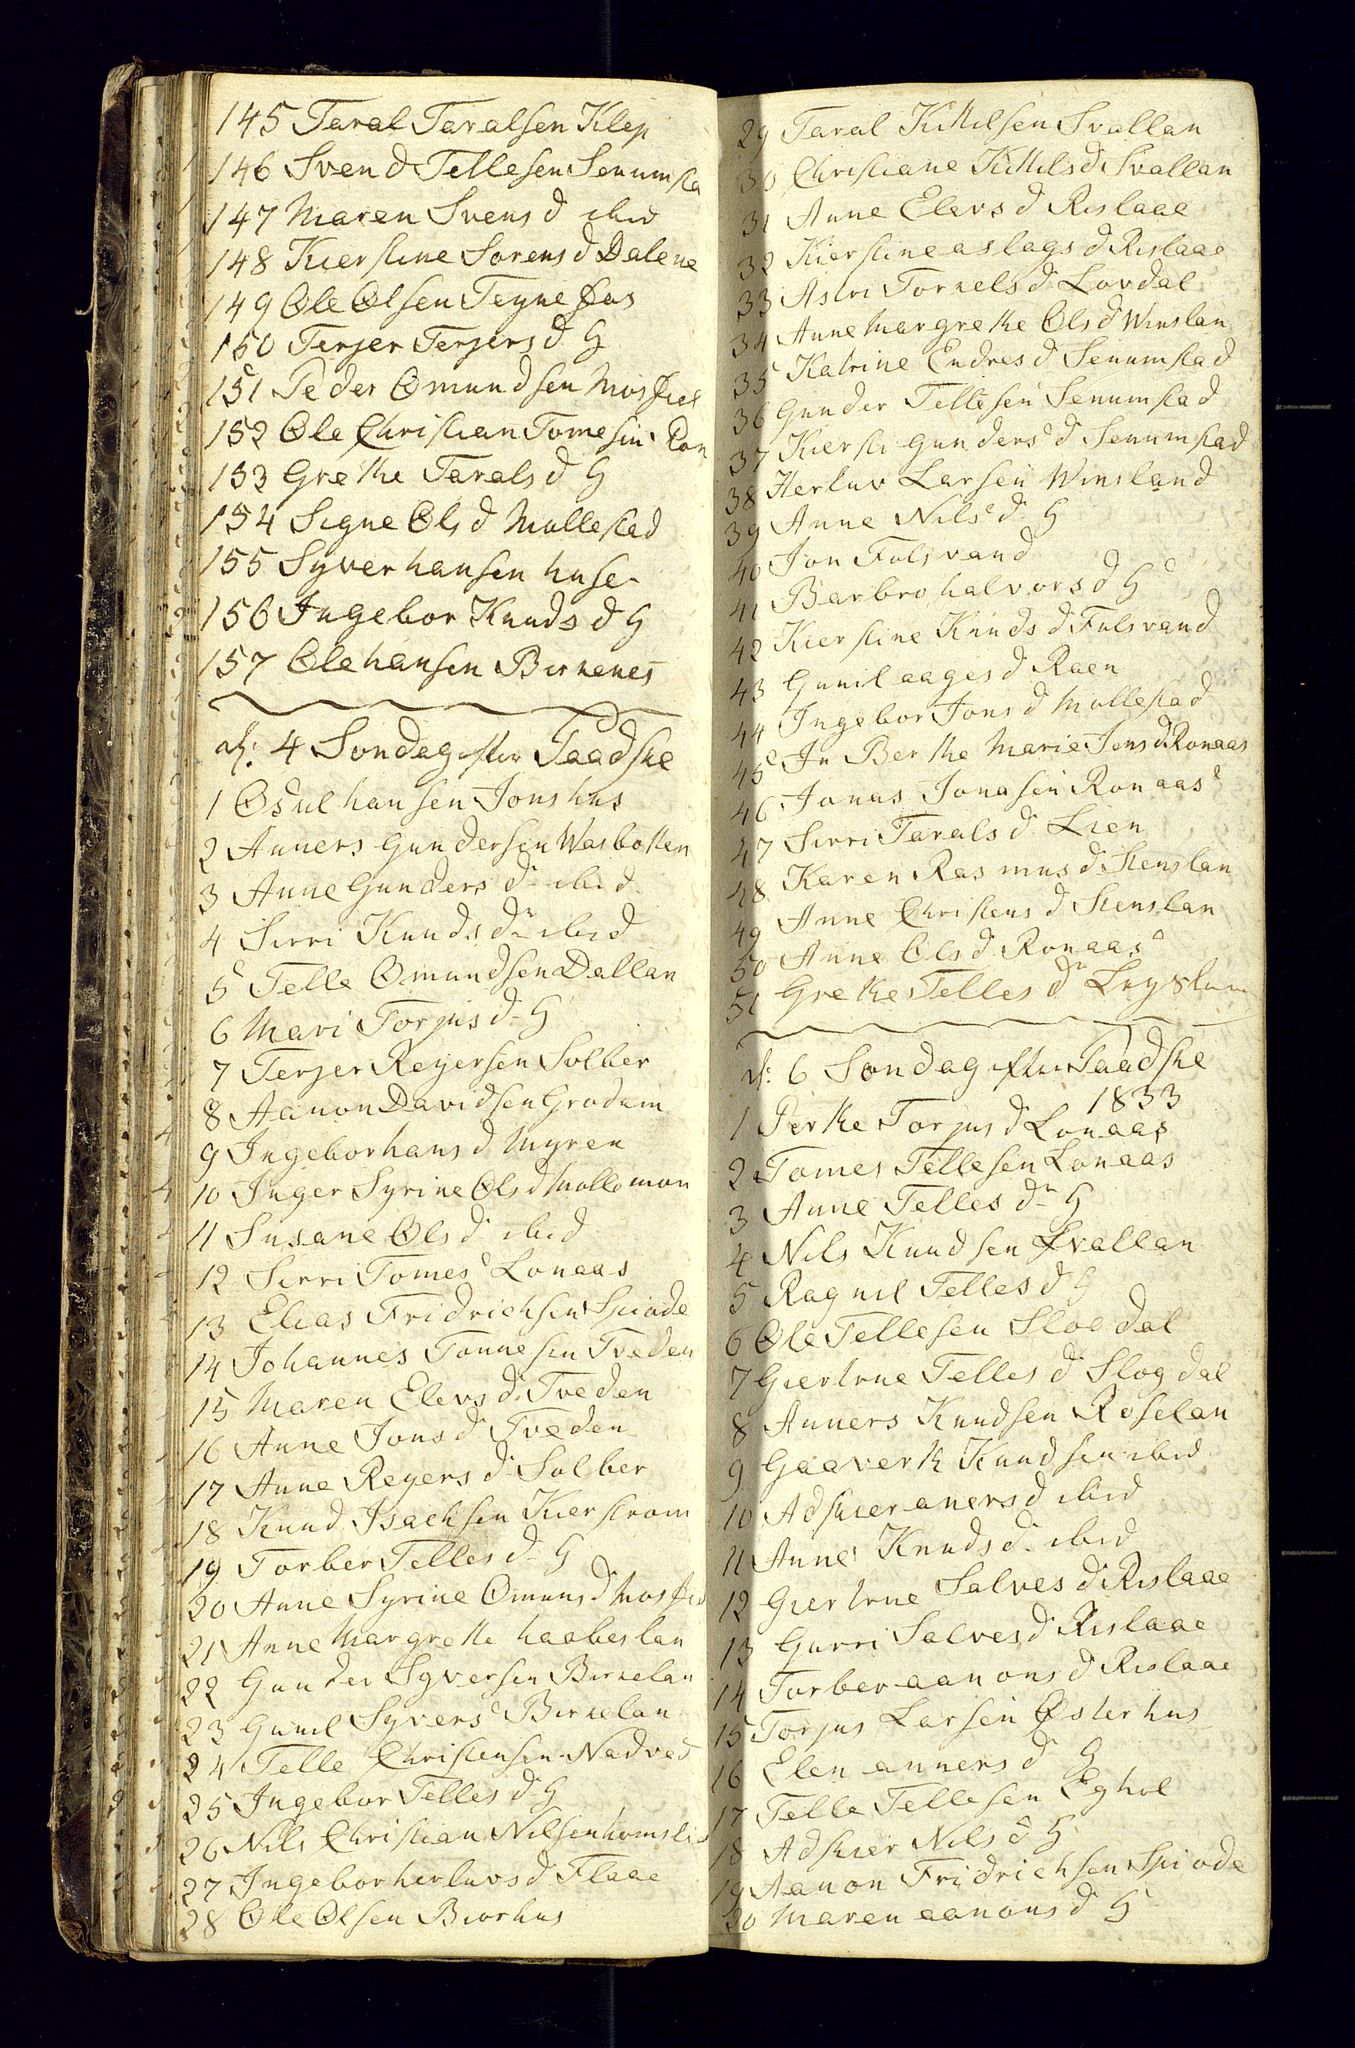 145 Taral Taralsen Klep
146 Svend Tellesen Senumsta
147 Maren Svensd ibid
148 Kierstine Sorensd Dalene
149 Ole Olsen Teynefos
150 Terjer Terjersd H
151 Peder Omundsen Mosfiel
152 Ole Christian Tomesin Ron
153 Grethe Taralsd H
154 Signe Olsd Mollestad
155 Syver hansen huse
156 Ingebor Knudsd H
157 Ole hansen Birkenes
d: 4 Søndag efter Paadske
1 Osul hansen Jonshus
2 Anners Gundersen Wasbotten
3 Anne Gundersd ibid
4 Sirri Knudsd ibid
5 Telle Omundsen Dallan
6 Mari Torjusd H
7 Terjer Reyersen Solber
8 Aanon Davidsen Grodum
9 Ingebor hansd Myren
10 Inger Syrine Olsd Mollemon
11 Susane Olsd ibid
12 Sirri Tomesd Lonaas
13 Elias Fridrichsen Spiode
14 Johannes Tonnesen Tveden
15 Maren Elevsd Tveden
16 Anne Jonsd Tveden
17 Anne Reyersd Solber
18 Knud Isachsen Kierstrom
19 Torber Tellesd H
20 Anne Syrine Omunsd Mosfiel
21 Anne Margrethe haabeslan
22 Gunder Syversen Birkelan
23 Gunil Syversd Birkelan
24 Telle Christensen Nadved
25 Ingebor Tellesd H
26 Nils Christian Nilsen homslid
27 Ingebor herluvsd Flaae
28 Ole Olsen Biorhus
29 Taral Kittilsen Svallan
30 Christiane Kittilsd Svallan
31 Anne Elevsd Rislaae
32 Kierstine aslagsd Rislaae
33 Asbri Torkelsd Lovdal
34 Anne Margrethe Olsd Winslan
35 Katrine Endresd Senumstad
36 Gunder Tellesen Senumstad
37 Kiersti Gundersd Senumstad
38 Herluv Larsen Winsland
39 Anne Nilsd H
40 Jon Fulsvand
41 Barbro halvorsd H
42 Kierstine Knudsd Fulsvand
43 Gunil aagesd Raen
44 Ingebor Jonsd Mollestad
45 In Berthe Marie Jonsd Ronaas
46 Jonas Jonasen Ronaas
47 Sirri Taralsd Lien
48 Karen Rasmusd Stenslan
49 Anne Christensd Stenslan
50 Anne Olsd Ronaas
51 Grethe Tellesd
d: 6 Søndag efter Paadske
1833
1 Berthe Torjusd Lonaas
2 Tomes Tellesen Lonaas
3 Anne Tellesd H
4 Nils Knudsen Svallan
5 Ragnil Tellesd H
6 Ole Tellesen Slogdal
7 Giertrue Tellesd Slogdal
8 Anners Knudsen Roselan
9 Gaaverth Knudsen ibid
10 Adskier anersd ibid
11 Anne Knudsd ibid
12 Giertrue Salvesd Rislaae
13 Gurri Salvesd Rislaae
14 Torber aanonsd Rislaae
15 Torjus Larsen Østerhus
16 Elen annersd H
17 Telle Tellesen Eghol
18 Adskier Nilsd H
19 Aanon Fridrichsen Spiode
20 Maren aanonsd H